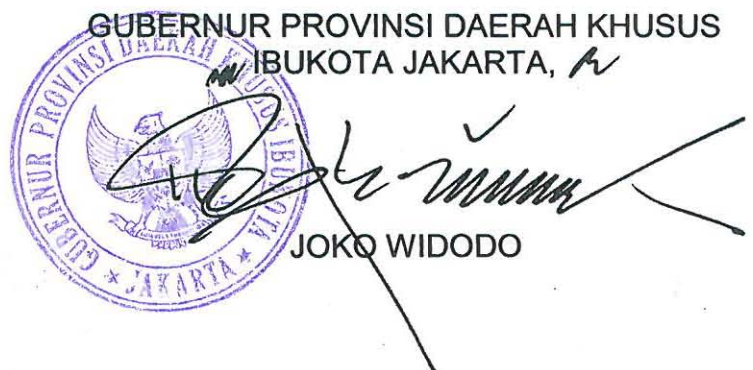 GUBERNUR PROVINSI DAERAH KHUSUS
IBUKOTA JAKARTA,
GUBERNUR PROVINSI DAERAH KHUSUS IBUKOTA
JAKARTA
JOKO WIDODO